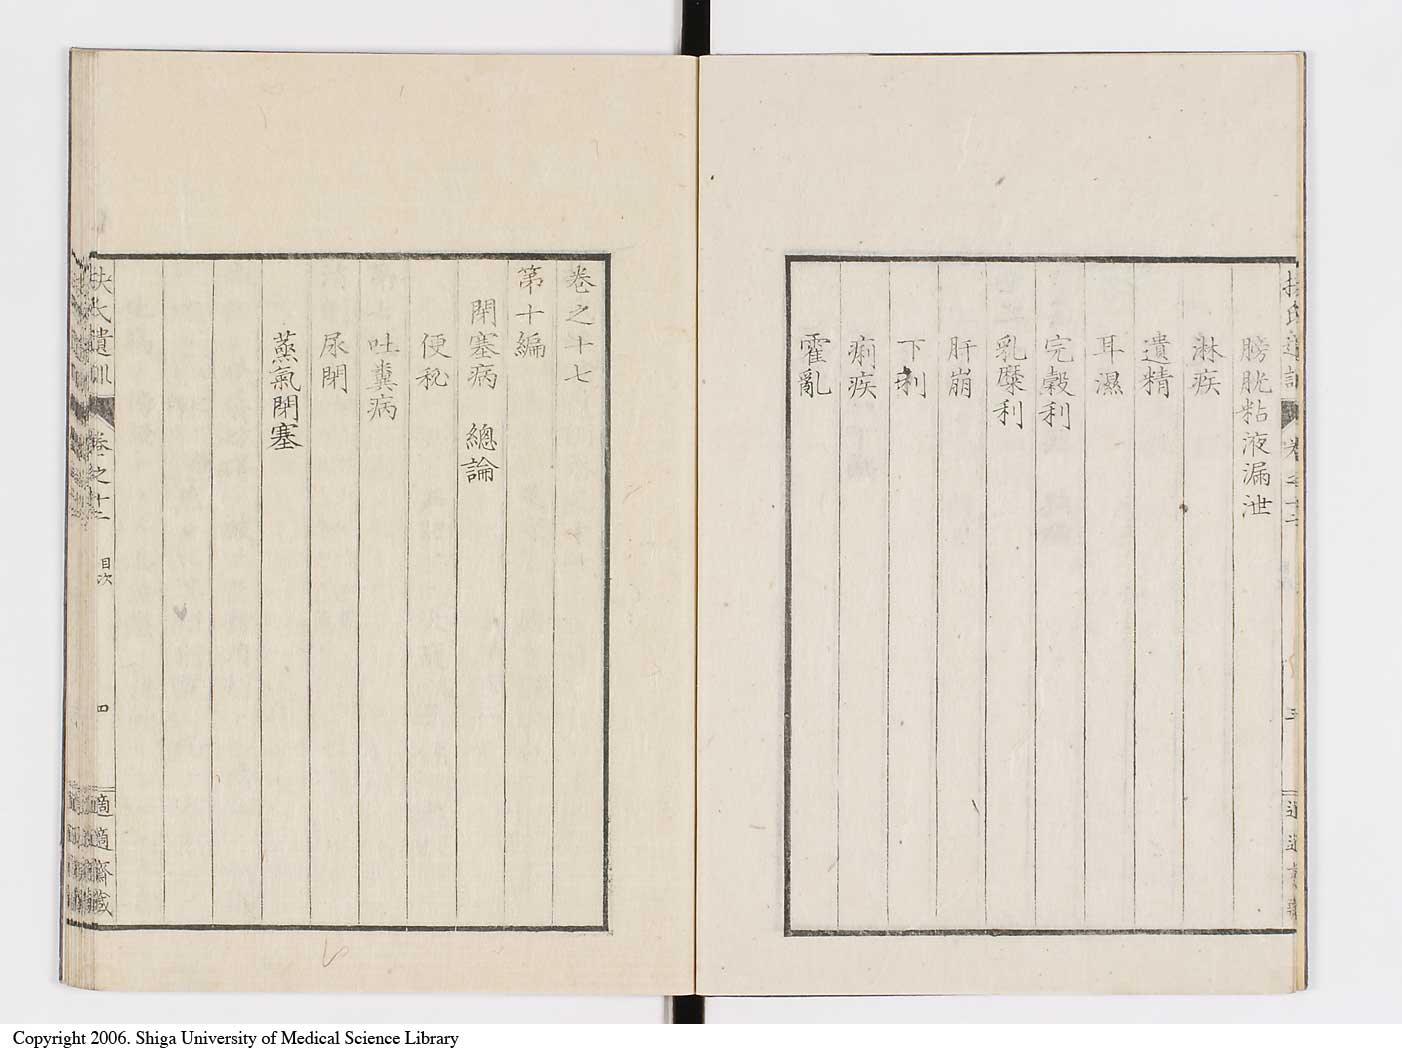 膀胱粘液漏泄
淋疾
遺精
耳濕
完穀利
乳糜利
肝崩
下利
痢疾
霍亂
卷之十七
第十編
閉塞病 總論
便秘
吐糞病
尿閉
蒸氣閉塞
扶氏遺訓 卷之十三 目次 四 適適齋藏
Copyright 2006. Shiga University of Medical Science Library